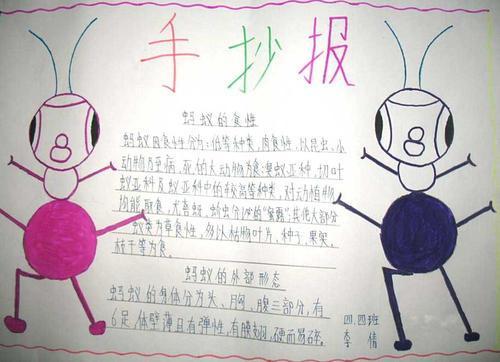 手抄报
蚂蚁的食性
蚂蚁的食性分为：低等种类，肉食性，以昆虫、小
动物及弱病、死的大动物为食；臭蚁亚科、切叶
蚁亚科及蚁亚科中的较高等种类，对动植物
均能取食，尤喜蚜、蚧虫分泌的"蜜露"；其他大部分
蚁类为草食性，多以植物叶片、种子、果浆、
枯干等为食。
蚂蚁的外部形态
蚂蚁的身体分为头、胸、腹三部分，有
6足，体壁薄且有弹性，有膜翅，硬而易碎。
四.四班
李倩